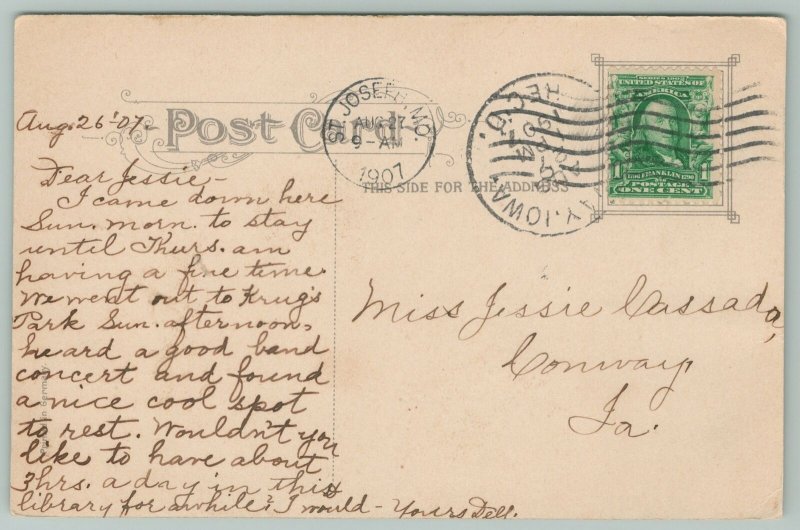 Post Card
THIS SIDE FOR THE ADDRESS
ST. JOSEPH, MO.
AUG 27
9-AM
1907
REC'D.
IOWA
SERIES 1902
UNITED STATES OF
AMERICA
1 FRANKLIN 1790 1
POSTAGE
ONE CENT
Aug. 26 - 07.
Dear Jessie,-
I came down here
Sun. morn. to stay
until Thurs. am
having a fine time.
We went out to Krug's
Park Sun. afternoon,
heard a good band
concert and found
a nice cool spot
to rest. Wouldn't you
like to have about
3 hrs. a day in this
library for awhile? I would - Yours Dell.
Miss Jessie Cassada,
Conway
Ia.
Germany